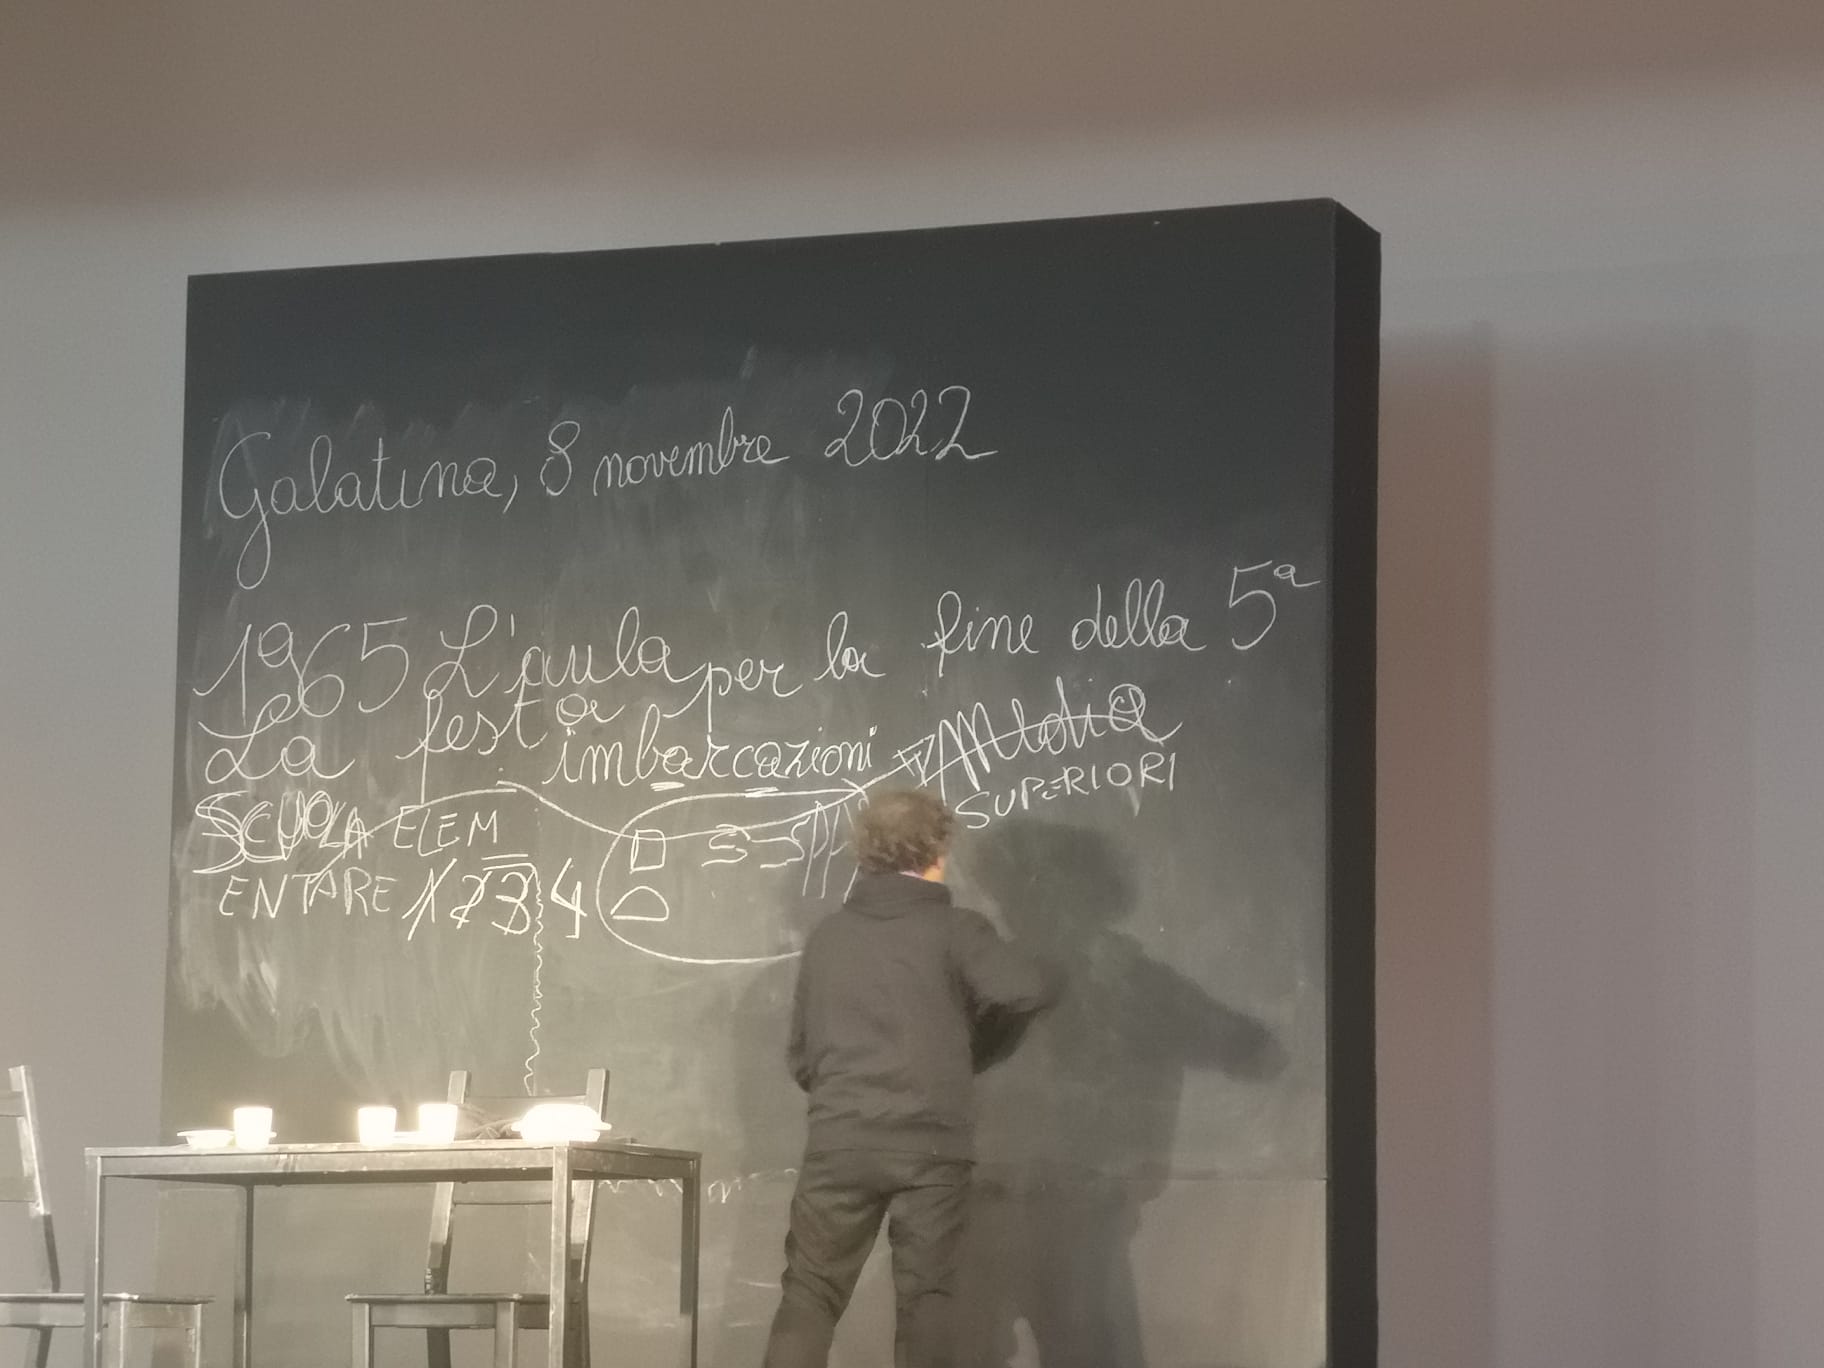 Galatina, 8 novembre 2022
1965 L'aula per la fine della 5ª
La festa imbarcazioni Media
SUPERIORI
SCUOLA ELEM
ENTARE 1 2 3 4